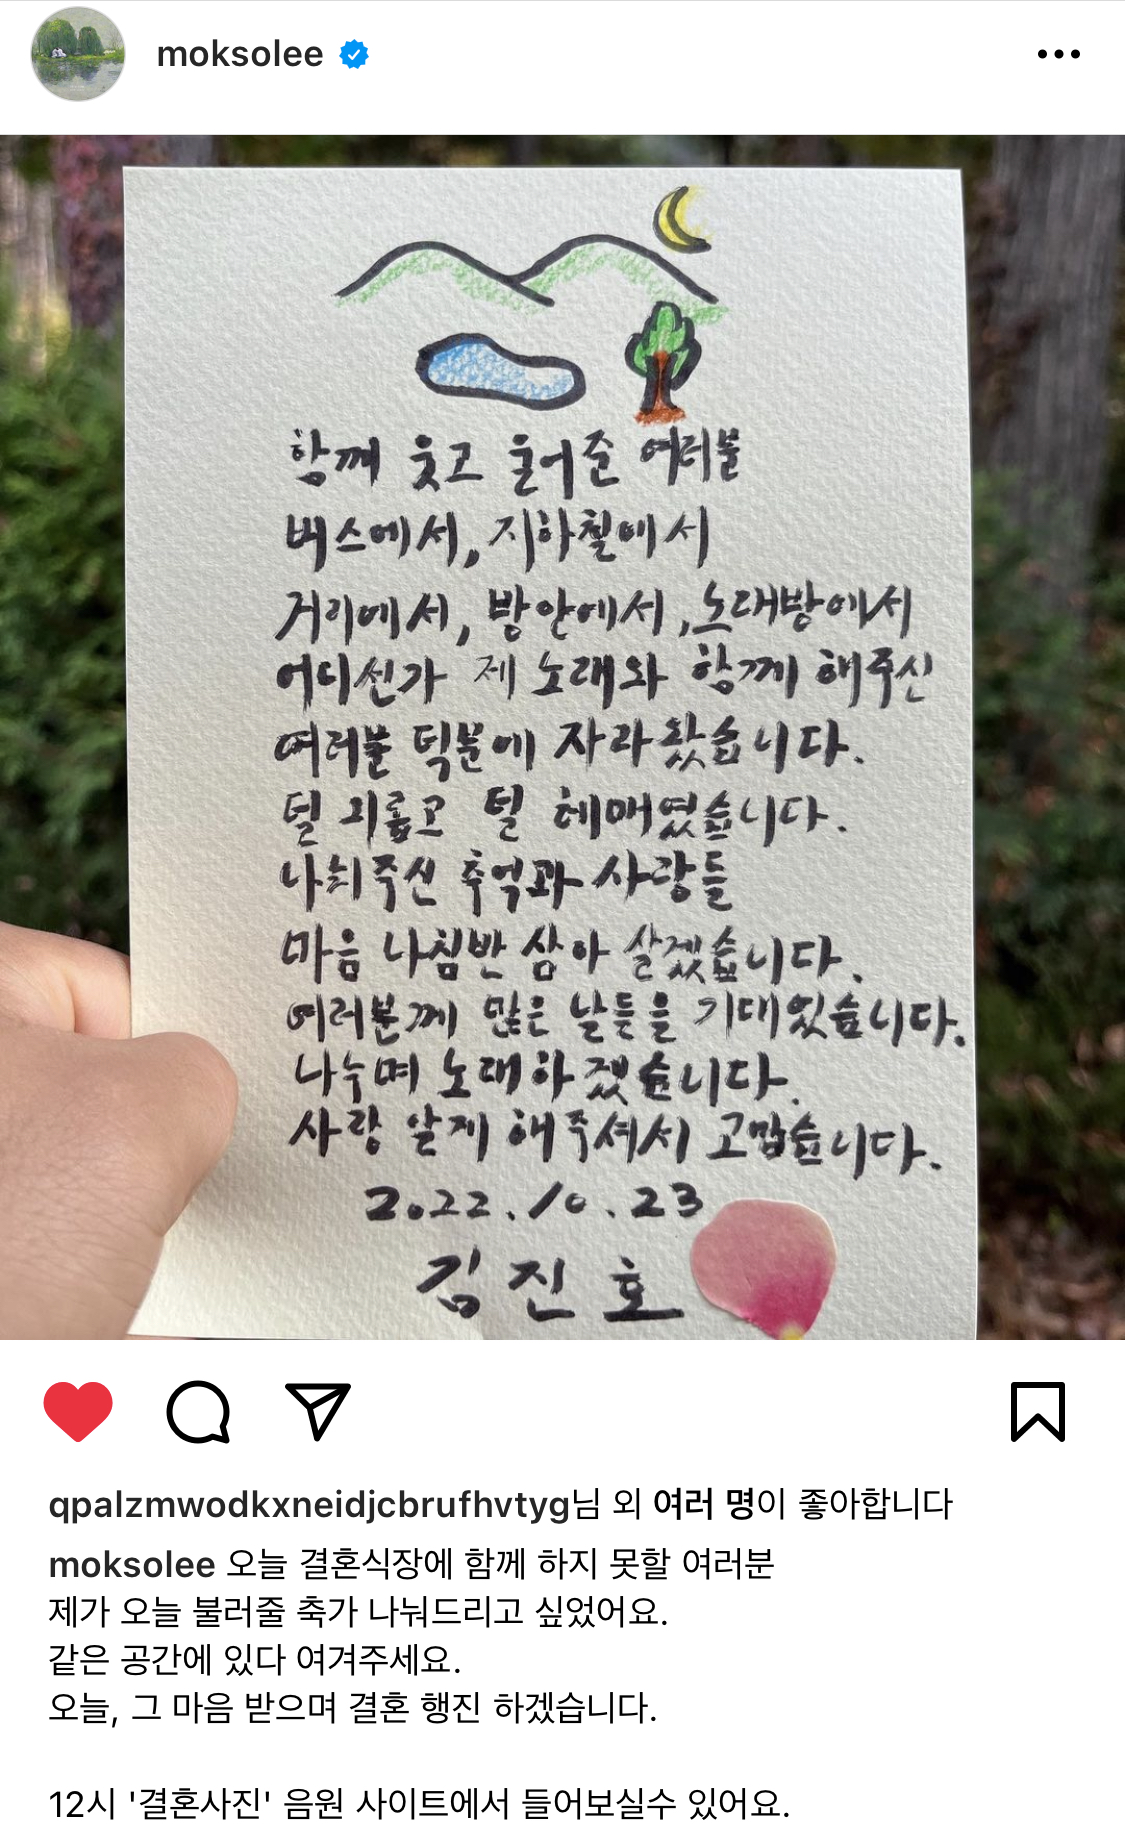 moksolee
함께 웃고 울어준 여러분
버스에서, 지하철에서
거리에서, 방안에서, 노래방에서
어디선가 제 노래와 함께 해주신
여러분 덕분에 자라왔습니다.
덜 괴롭고 덜 헤매였습니다.
나눠주신 추억과 사랑들
마음 나침반 삼아 살겠습니다.
여러분께 많은 날들을 기대있습니다.
나누며 노래하겠습니다.
사랑 알게 해주셔서 고맙습니다.
2022.10.23
김진호
qpalzmwodkxneidjcbrufhvtyg님 외 여러 명이 좋아합니다
moksolee 오늘 결혼식장에 함께 하지 못할 여러분
제가 오늘 불러줄 축가 나눠드리고 싶었어요.
같은 공간에 있다 여겨주세요.
오늘, 그 마음 받으며 결혼 행진 하겠습니다.
12시 '결혼사진' 음원 사이트에서 들어보실수 있어요.